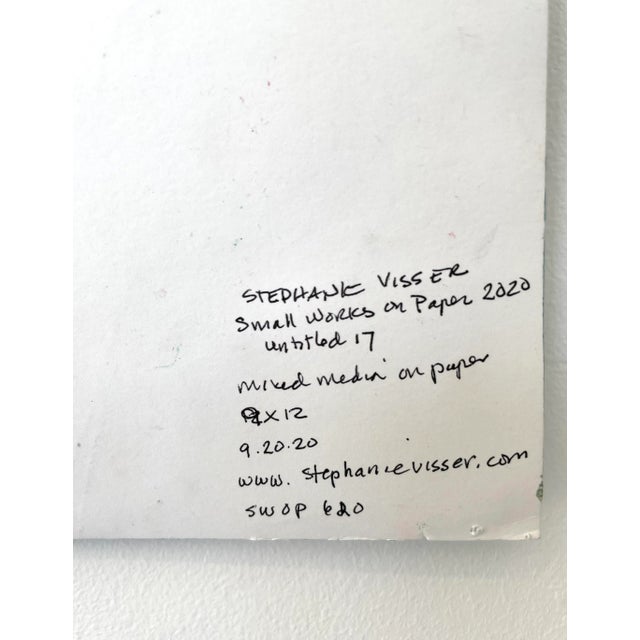 STEPHANIE VISSER
Small Works on Paper 2020
untitled 17
mixed media on paper
9x12
9.20.20
www.stephanievisser.com
SWOP 620